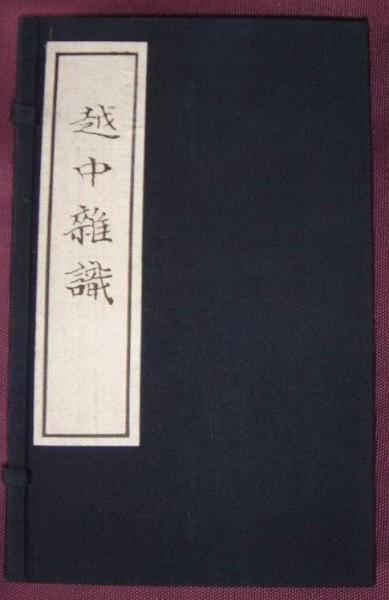 越中雜識